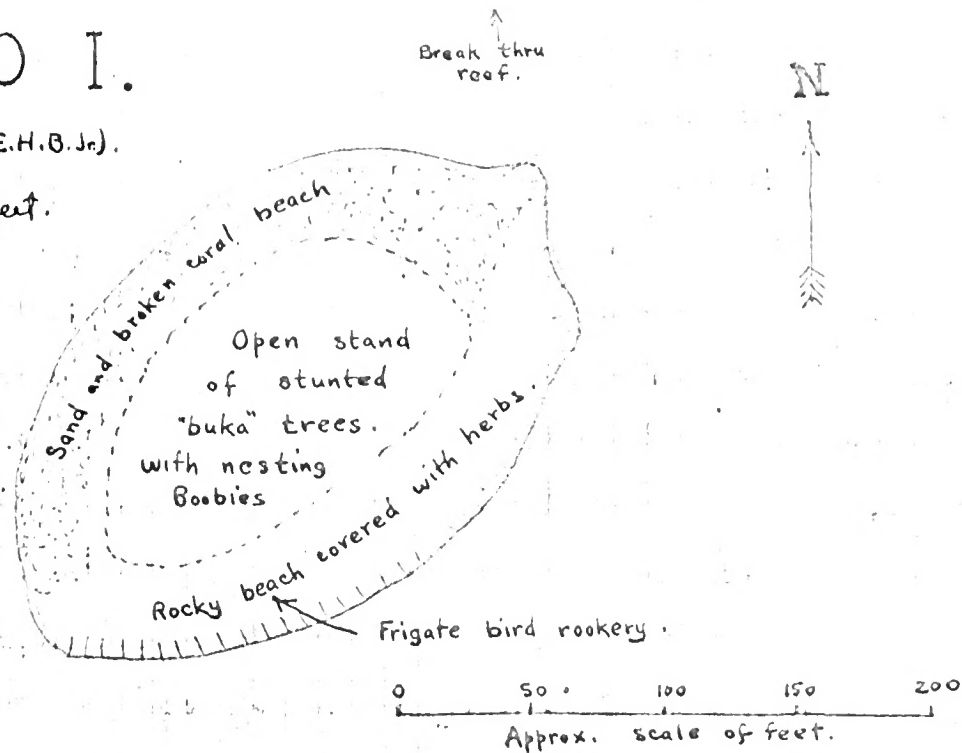 O I.
E.H.B.Jr).
eet.
Break thru
reef.
N
Sand and broken coral beach
Open stand
of stunted
"buka" trees.
with nesting
Boobies
Rocky beach covered with herbs.
Frigate bird rookery.
0 50 100 150 200
Approx. scale of feet.